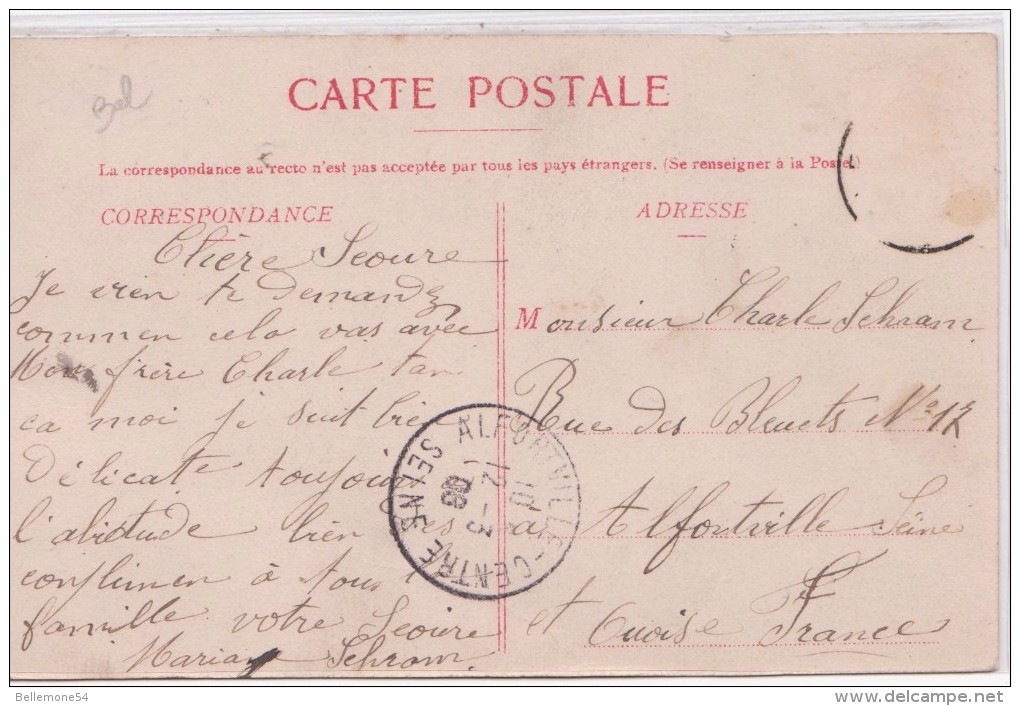 Bel
CARTE POSTALE
La correspondance au recto n'est pas acceptée par tous les pays étrangers. (Se renseigner à la Poste.)
CORRESPONDANCE
Chère Seoure
Je vien te demandez
commen cela vas avec
Mon frère Charle tan
ca moi je suit bien
Délicate toujour
l'abitude bien
conplimen à tous
famille votre Seoure
Maria Schram.
ADRESSE
Monsieur Charle Schram
Rue des Bleuets No 12
a Alfontville Seine
et Ouoise France
ALFORTVILLE-CENTRE SEINE
10
12 -3
09
Bellemone54
delcampe.net